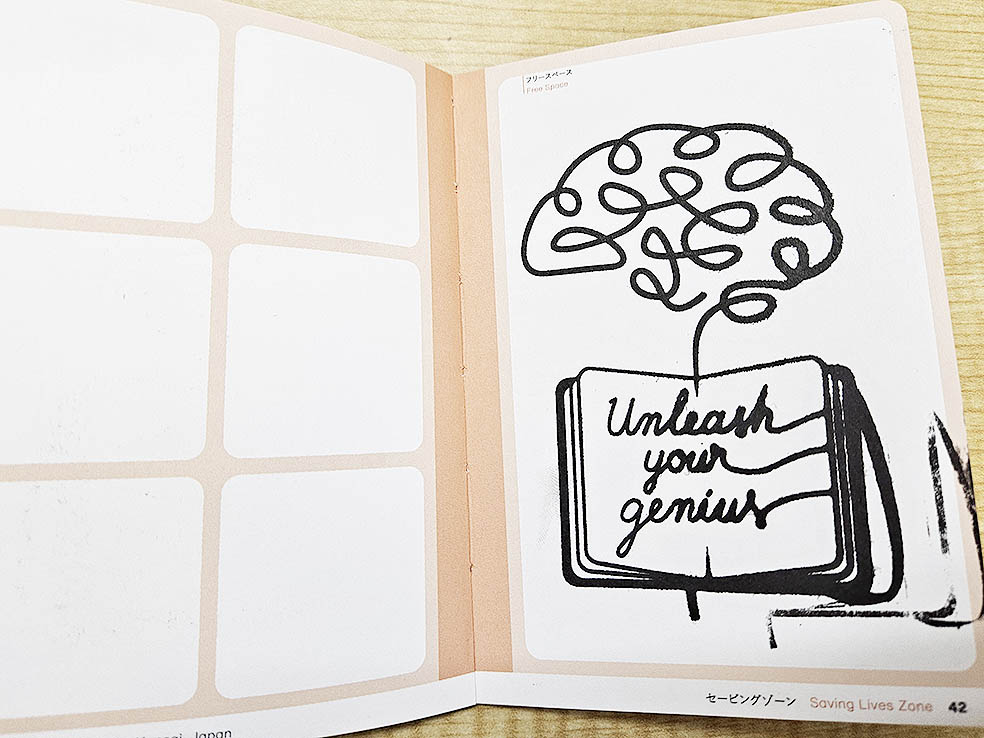 フリースペース
Free Space
Unleash
your
genius
セービングゾーン Saving Lives Zone 42
Japan